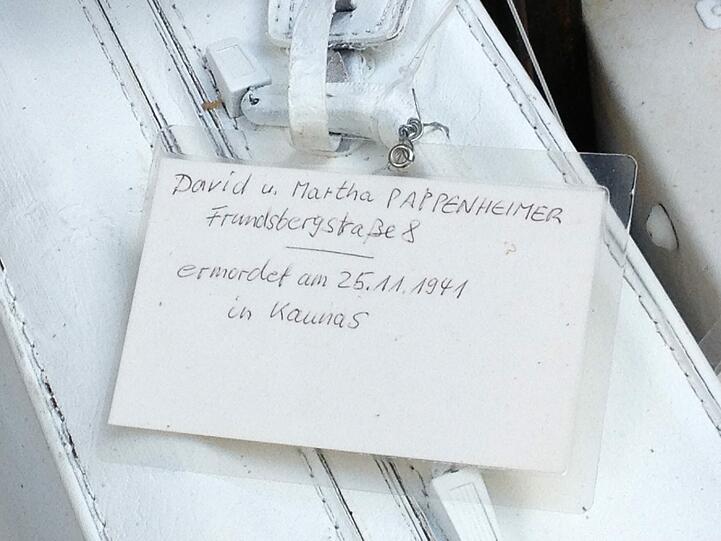 David u. Martha PAPPENHEIMER
Frundsbergstraße 8
ermordet am 25.11.1941
in Kaunas